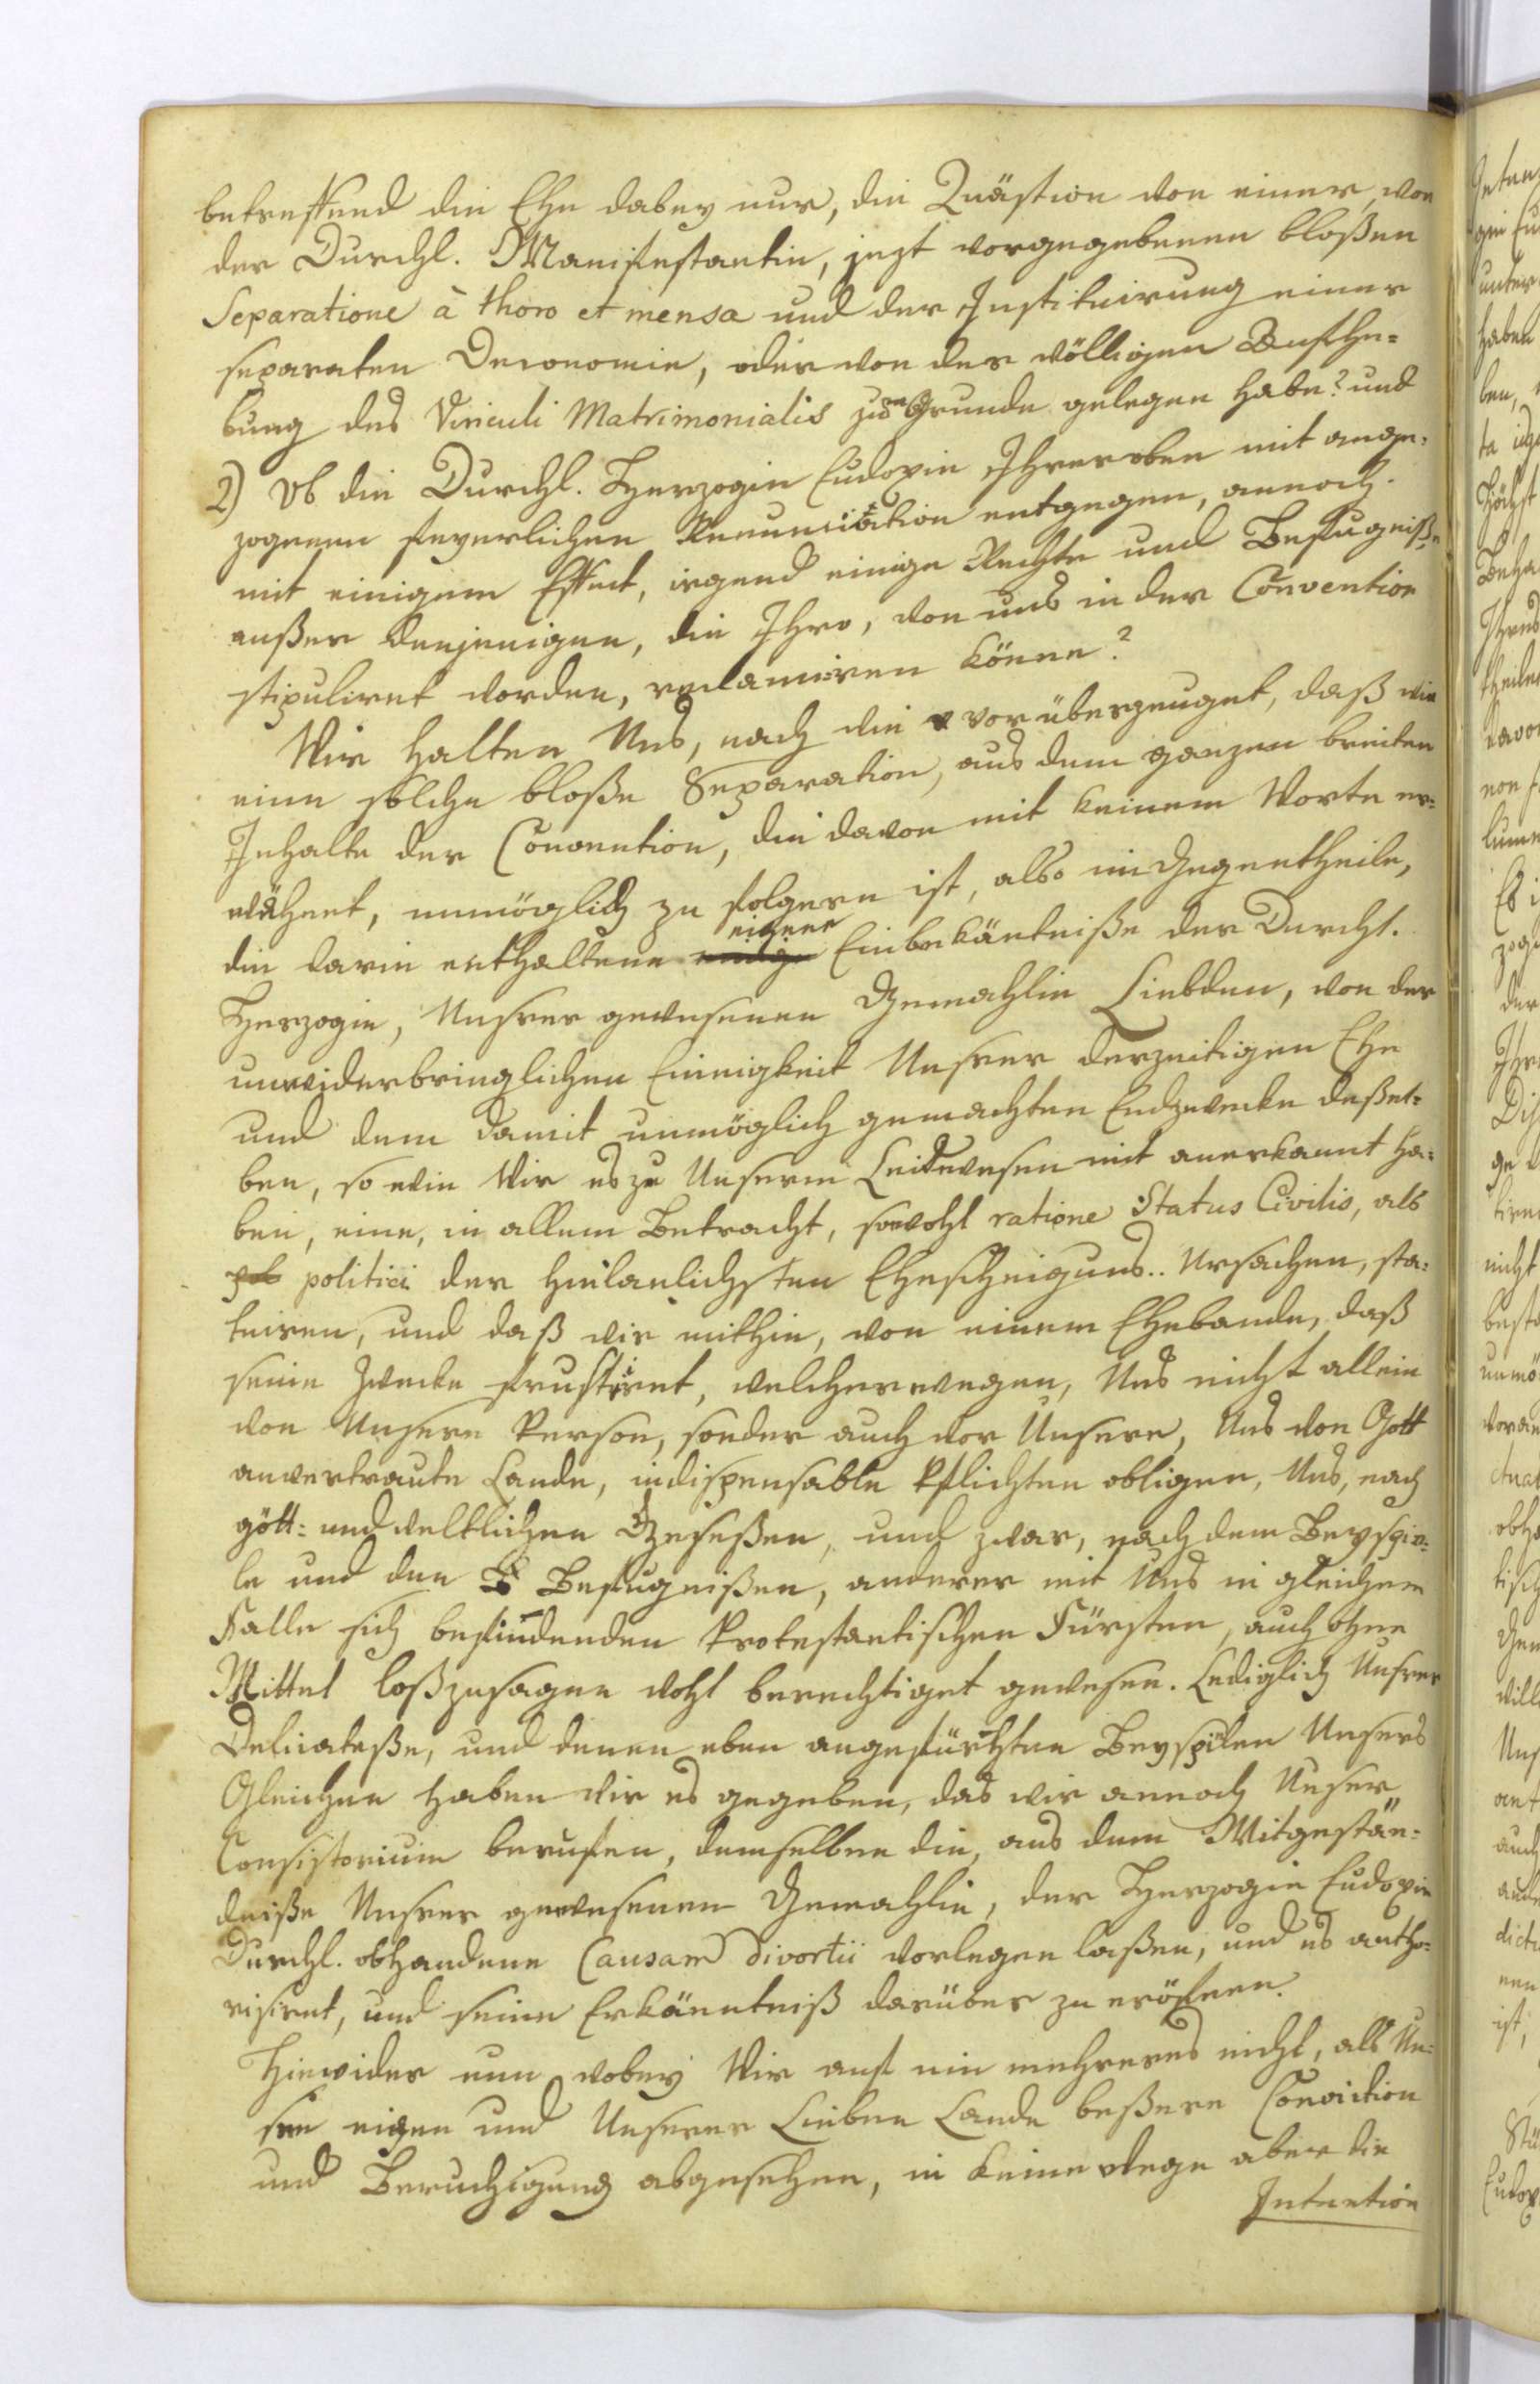 betreffend die Ehe dabey nur, die Quästion von einer, von
der Durchl. Manifestantin, jezt vorgegebenen bloßen
Separatione à thoro et mensa und der Instituirung einer
separaten Oeconomie, oder von der völligen Aufhe-
bung des Vinculi Matrimonialis zum Grunde gelegen habe? und
2) Ob die Durchl. Herzogin Eudoxie Ihrer oben mit ange-
zogenen feyerlichen Renunciation entgegen, annoch
mit einigem Effect, irgend einige Rechte und Befugniße
außer denjenigen, die Ihro, von uns in der Convention
stipuliret worden, reclamiren könne?
Wir halten Uns, nach wie vor überzeuget, daß wie
eine solche bloße Separation, aus dem ganzen breiten
Inhalte der Convention, die davon mit keinem Worte er-
wähnet, unmöglich zu folgern ist, also im Gegentheile,
die darin enthaltene eigene Einbekäntniße der Durchl.
Herzogin, Unsrer gewesenen Gemahlin Liebden, von der
unwiderbringlichen Einigkeit Unsrer derzeitigen Ehe
und dem damit unmöglich gemachten Endzwecke deßel-
ben, so wie Wir es zu Unserm Leidwesen mit anerkannt ha-
ben, eine, in allem Betracht, sowohl ratione Status Civilis, als
pol politici der hinlänlichsten Ehescheigungs.. Ursachen, sta-
tuiren, und daß wir mithin, von einem Ehebande, daß
seine Zwecke frustriret, welcherwegen, Uns nicht allein
von Unsern Person, sonder auch vor Unsere, Uns von Gott
anvertraute Lande, indispensable Pflichten obligen, Uns, nach
gött- und weltlichen Gesetzen, und zwar, nach dem Beyspie-
le und den B Befugnißen, anderer mit Uns in gleichem
Falle sich befindenden Protestantischen Fürsten, auch ohne
Mittel loßzusagen wohl berechtiget gewesen. Lediglich Unsrer
Delicateße, und denen eben angeführten Beyspielen Unsers
Gleichen haben wir es gegeben, das wir annoch Unser
Consistorium berufen, demselben die, aus dem Mitgestän-
dniße Unsrer gewesenen Gemahlin, der Herzogin Eudoxie
Durchl. obhandene Causam divortii vorlegen laßen, und es autho-
risiret, und seine Erkänntniß darüber zu eröfnen.
Hiewider nun wobey Wir auf ein mehreres nicht, als Un-
sre eigen und Unserer Lieben Lande beßere Conviction
und Beruhigung abgesehen, in keine wege aber die
Intention